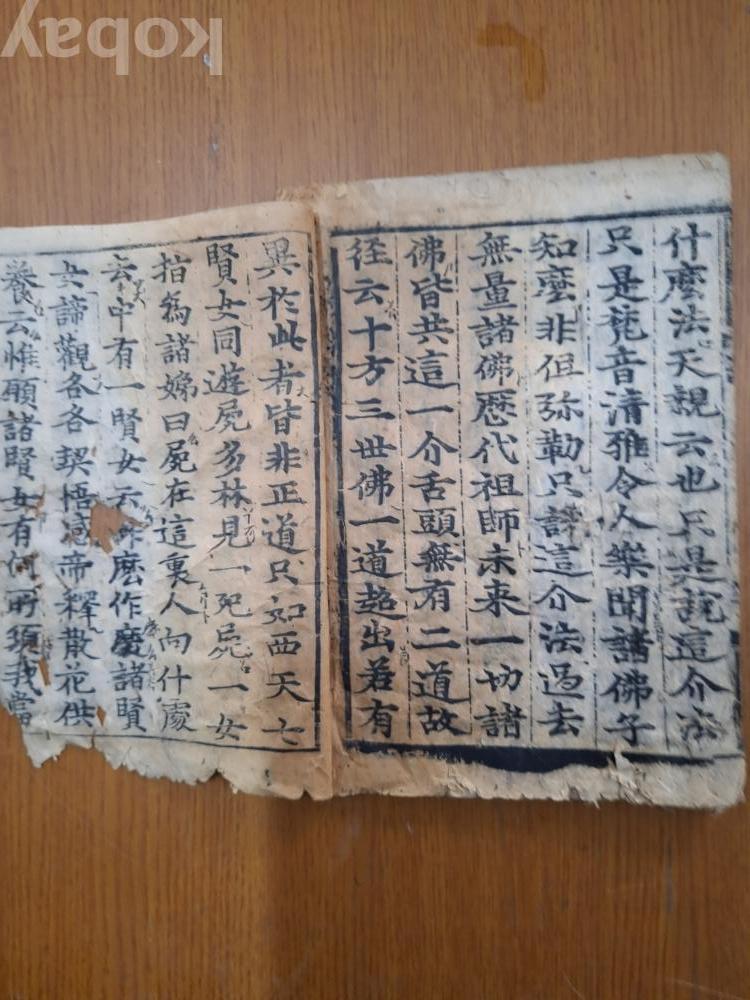 什麽法天親云也只是說這介法
只是梵音清雅令人樂聞諸佛子
知麽非但弥勒只說這介法過去
無量諸佛歷代祖師未来一切諸
佛皆共這一介舌頭無有二道故
径云十方三世佛一道超出若有
異於此者皆非正道只如西天七
賢女同遊屍多林見一死屍一女
指爲諸姊曰屍在這裏人向什處
去中有一賢女云作麽作麽諸賢
女諦觀各各契悟感帝釋散花供
養云惟願諸賢女有何所須我當
kobay